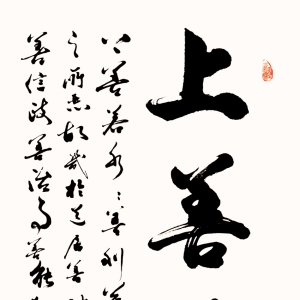 上善
上善若水〻善利萬
之所惡故幾於道居善地
善信政善治事善能